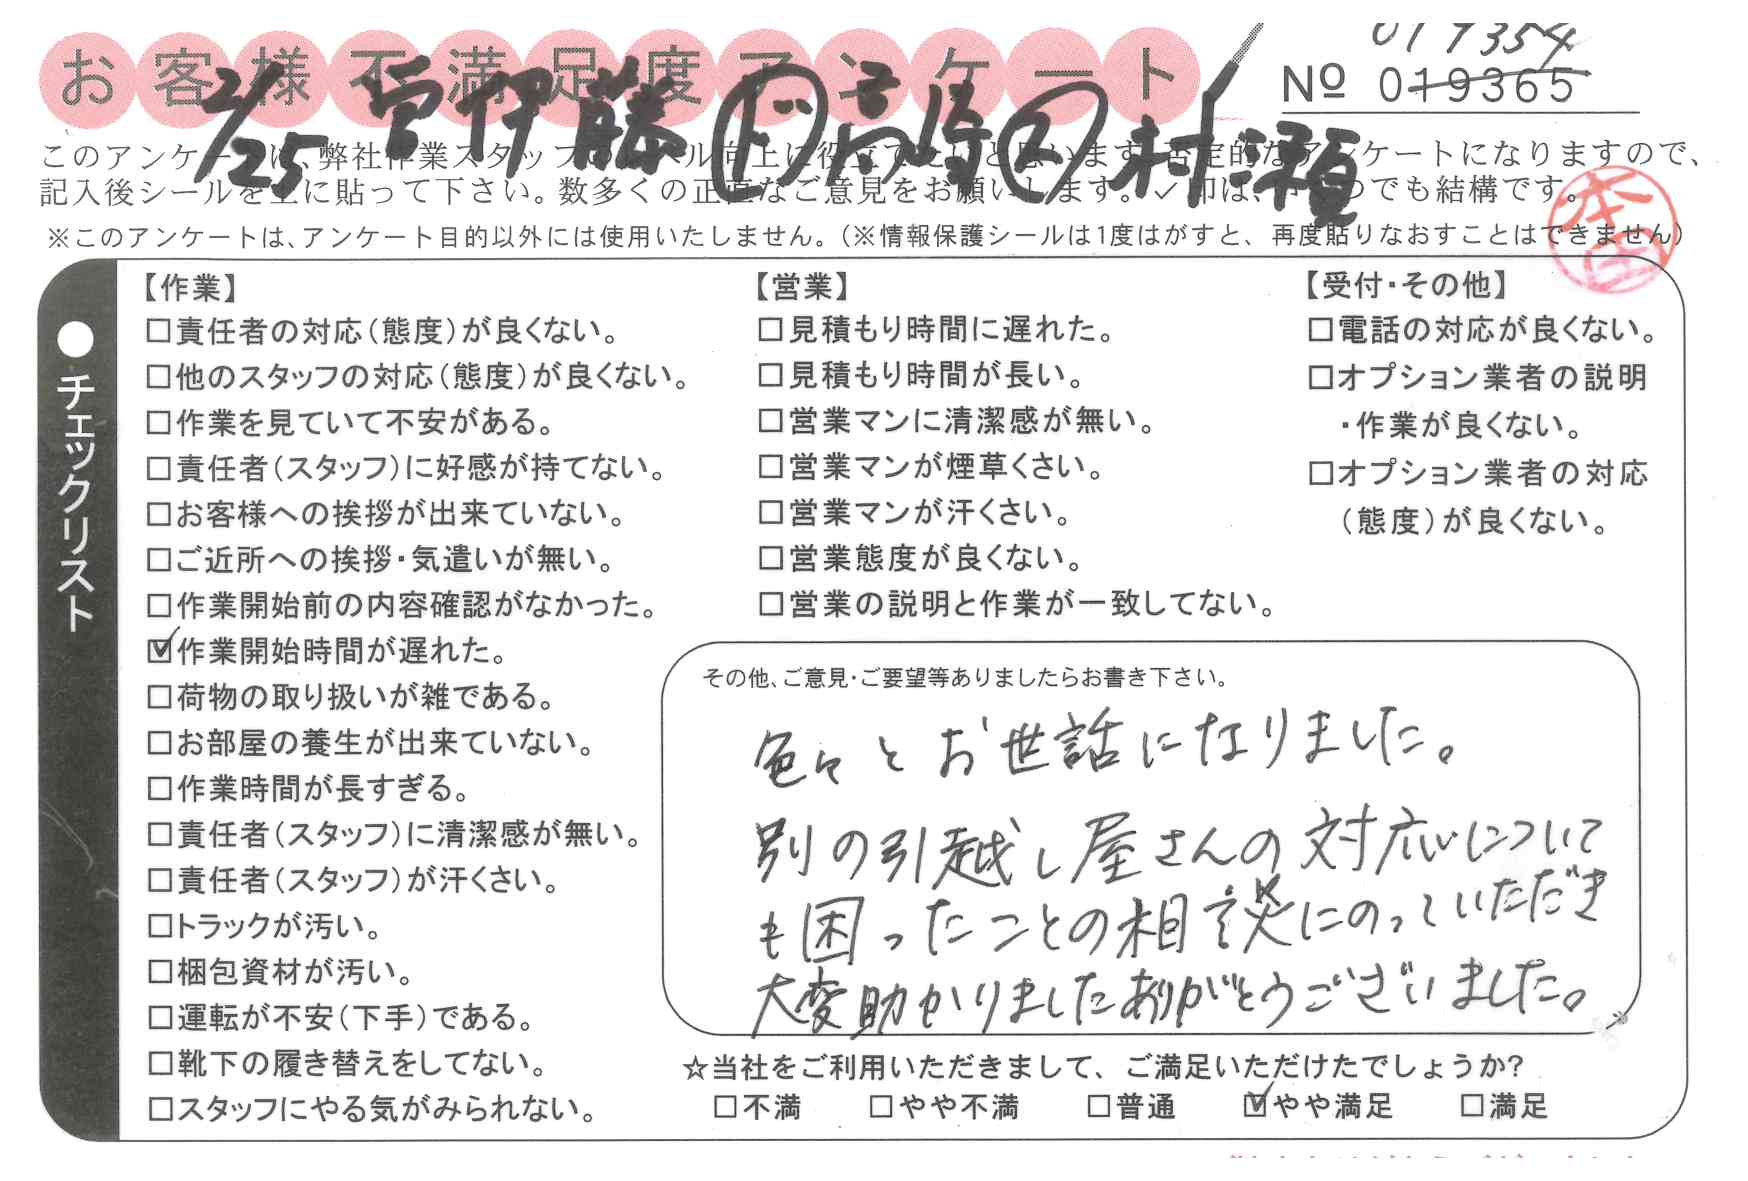 お客様不満足度アンケート
019354
Nº 019365
2/25 営 伊藤 ド 高崎 ㋮ 村瀬
このアンケートは、弊社作業スタッフのレベル向上に役立てたいと思います。否定的なアンケートになりますので、
記入後シールを上に貼って下さい。数多くの正直なご意見をお願いします。✓印は、いくつでも結構です。
※このアンケートは、アンケート目的以外には使用いたしません。(※情報保護シールは1度はがすと、再度貼りなおすことはできません)
●チェックリスト
【作業】
□責任者の対応(態度)が良くない。
□他のスタッフの対応(態度)が良くない。
□作業を見ていて不安がある。
□責任者(スタッフ)に好感が持てない。
□お客様への挨拶が出来ていない。
□ご近所への挨拶・気遣いが無い。
□作業開始前の内容確認がなかった。
☑作業開始時間が遅れた。
□荷物の取り扱いが雑である。
□お部屋の養生が出来ていない。
□作業時間が長すぎる。
□責任者(スタッフ)に清潔感が無い。
□責任者(スタッフ)が汗くさい。
□トラックが汚い。
□梱包資材が汚い。
□運転が不安(下手)である。
□靴下の履き替えをしてない。
□スタッフにやる気がみられない。
【営業】
□見積もり時間に遅れた。
□見積もり時間が長い。
□営業マンに清潔感が無い。
□営業マンが煙草くさい。
□営業マンが汗くさい。
□営業態度が良くない。
□営業の説明と作業が一致してない。
【受付・その他】
□電話の対応が良くない。
□オプション業者の説明
・作業が良くない。
□オプション業者の対応
(態度)が良くない。
その他、ご意見・ご要望等ありましたらお書き下さい。
色々とお世話になりました。
別の引越し屋さんの対応について
も困ったことの相談にのっていただき
大変助かりましたありがとうございました。
☆当社をご利用いただきまして、ご満足いただけたでしょうか?
□不満 □やや不満 □普通 ☑やや満足 □満足